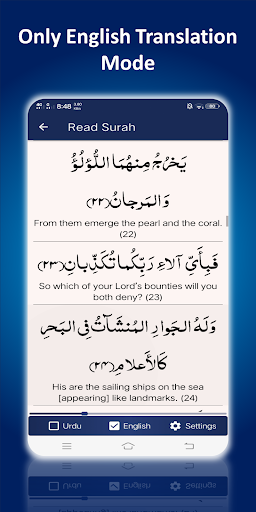 Only English Translation
Mode
8:48
Read Surah
يَخْرُجُ مِنْهُمَا اللُّؤْلُؤُ
وَالمَرجانُ ﴿٢٢﴾
From them emerge the pearl and the coral.
(22)
فَبِأَيِّ آلاءِ رَبِّكُما تُكَذِّبانِ ﴿٢٣﴾
So which of your Lord's bounties will you
both deny? (23)
وَلَهُ الجَوارِ المُنشَآتُ فِي البَحرِ
كَالأَعلامِ ﴿٢٤﴾
His are the sailing ships on the sea
[appearing] like landmarks. (24)
Urdu
English
Settings